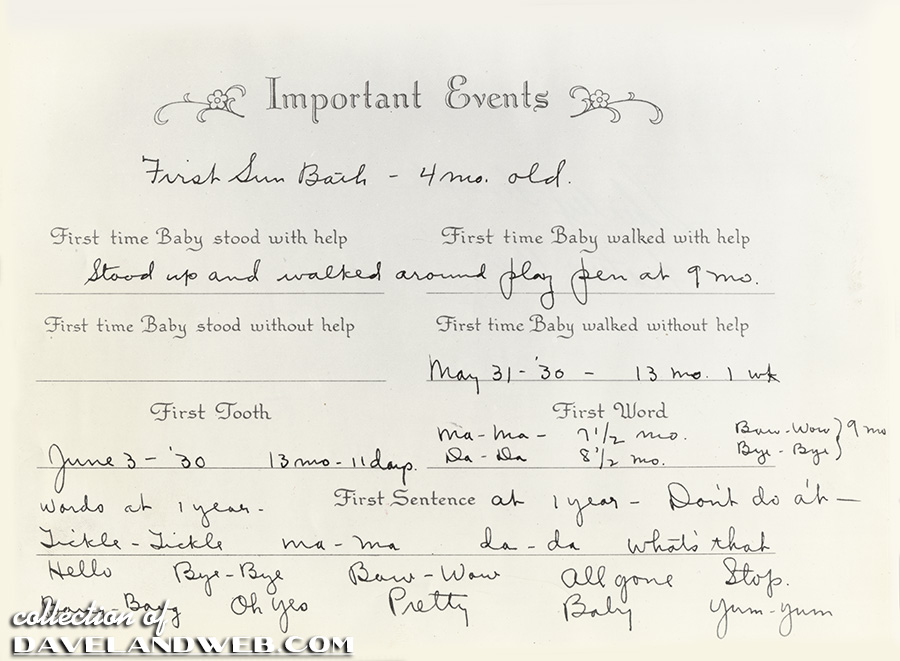 Important Events
First Sun Bath - 4 mo. old.
First time Baby stood with help First time Baby walked with help
Stood up and walked around play pen at 9 mo.
First time Baby stood without help First time Baby walked without help
May 31 - '30 - 13 mo. 1 wk
First Tooth First Word
Ma-Ma - 7 1/2 mo. Bow-Wow } 9 mo
June 3 - '30 13 mo - 11 days. Da-Da 8 1/2 mo. Bye-Bye
words at 1 year - First Sentence at 1 year - Don't do a't -
Tickle - Tickle ma-ma da-da what's that
Hello Bye-Bye Bow-Wow all gone Stop.
Oh yes Pretty Baby Yum-yum
collection of
DAVELANDWEB.COM